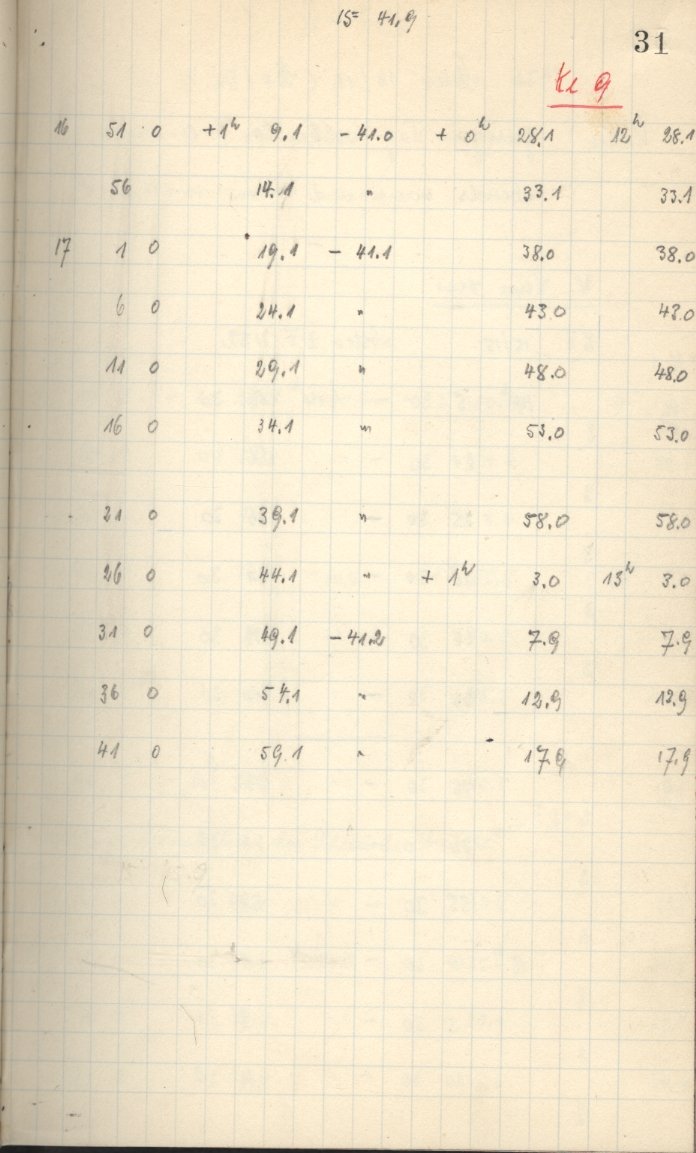 15= 41,9
31
Kl 9
16 51 0 +1h 9.1 -41.0 +0h 28.1 12h 28.1
56 14.1 " 33.1 33.1
17 1 0 19.1 -41.1 38.0 38.0
6 0 24.1 " 43.0 43.0
11 0 29.1 " 48.0 48.0
16 0 34.1 " 53.0 53.0
21 0 39.1 " 58.0 58.0
26 0 44.1 " +1h 3.0 13h 3.0
31 0 49.1 -41.2 7.9 7.9
36 0 54.1 " 12.9 12.9
41 0 59.1 " 17.9 17.9